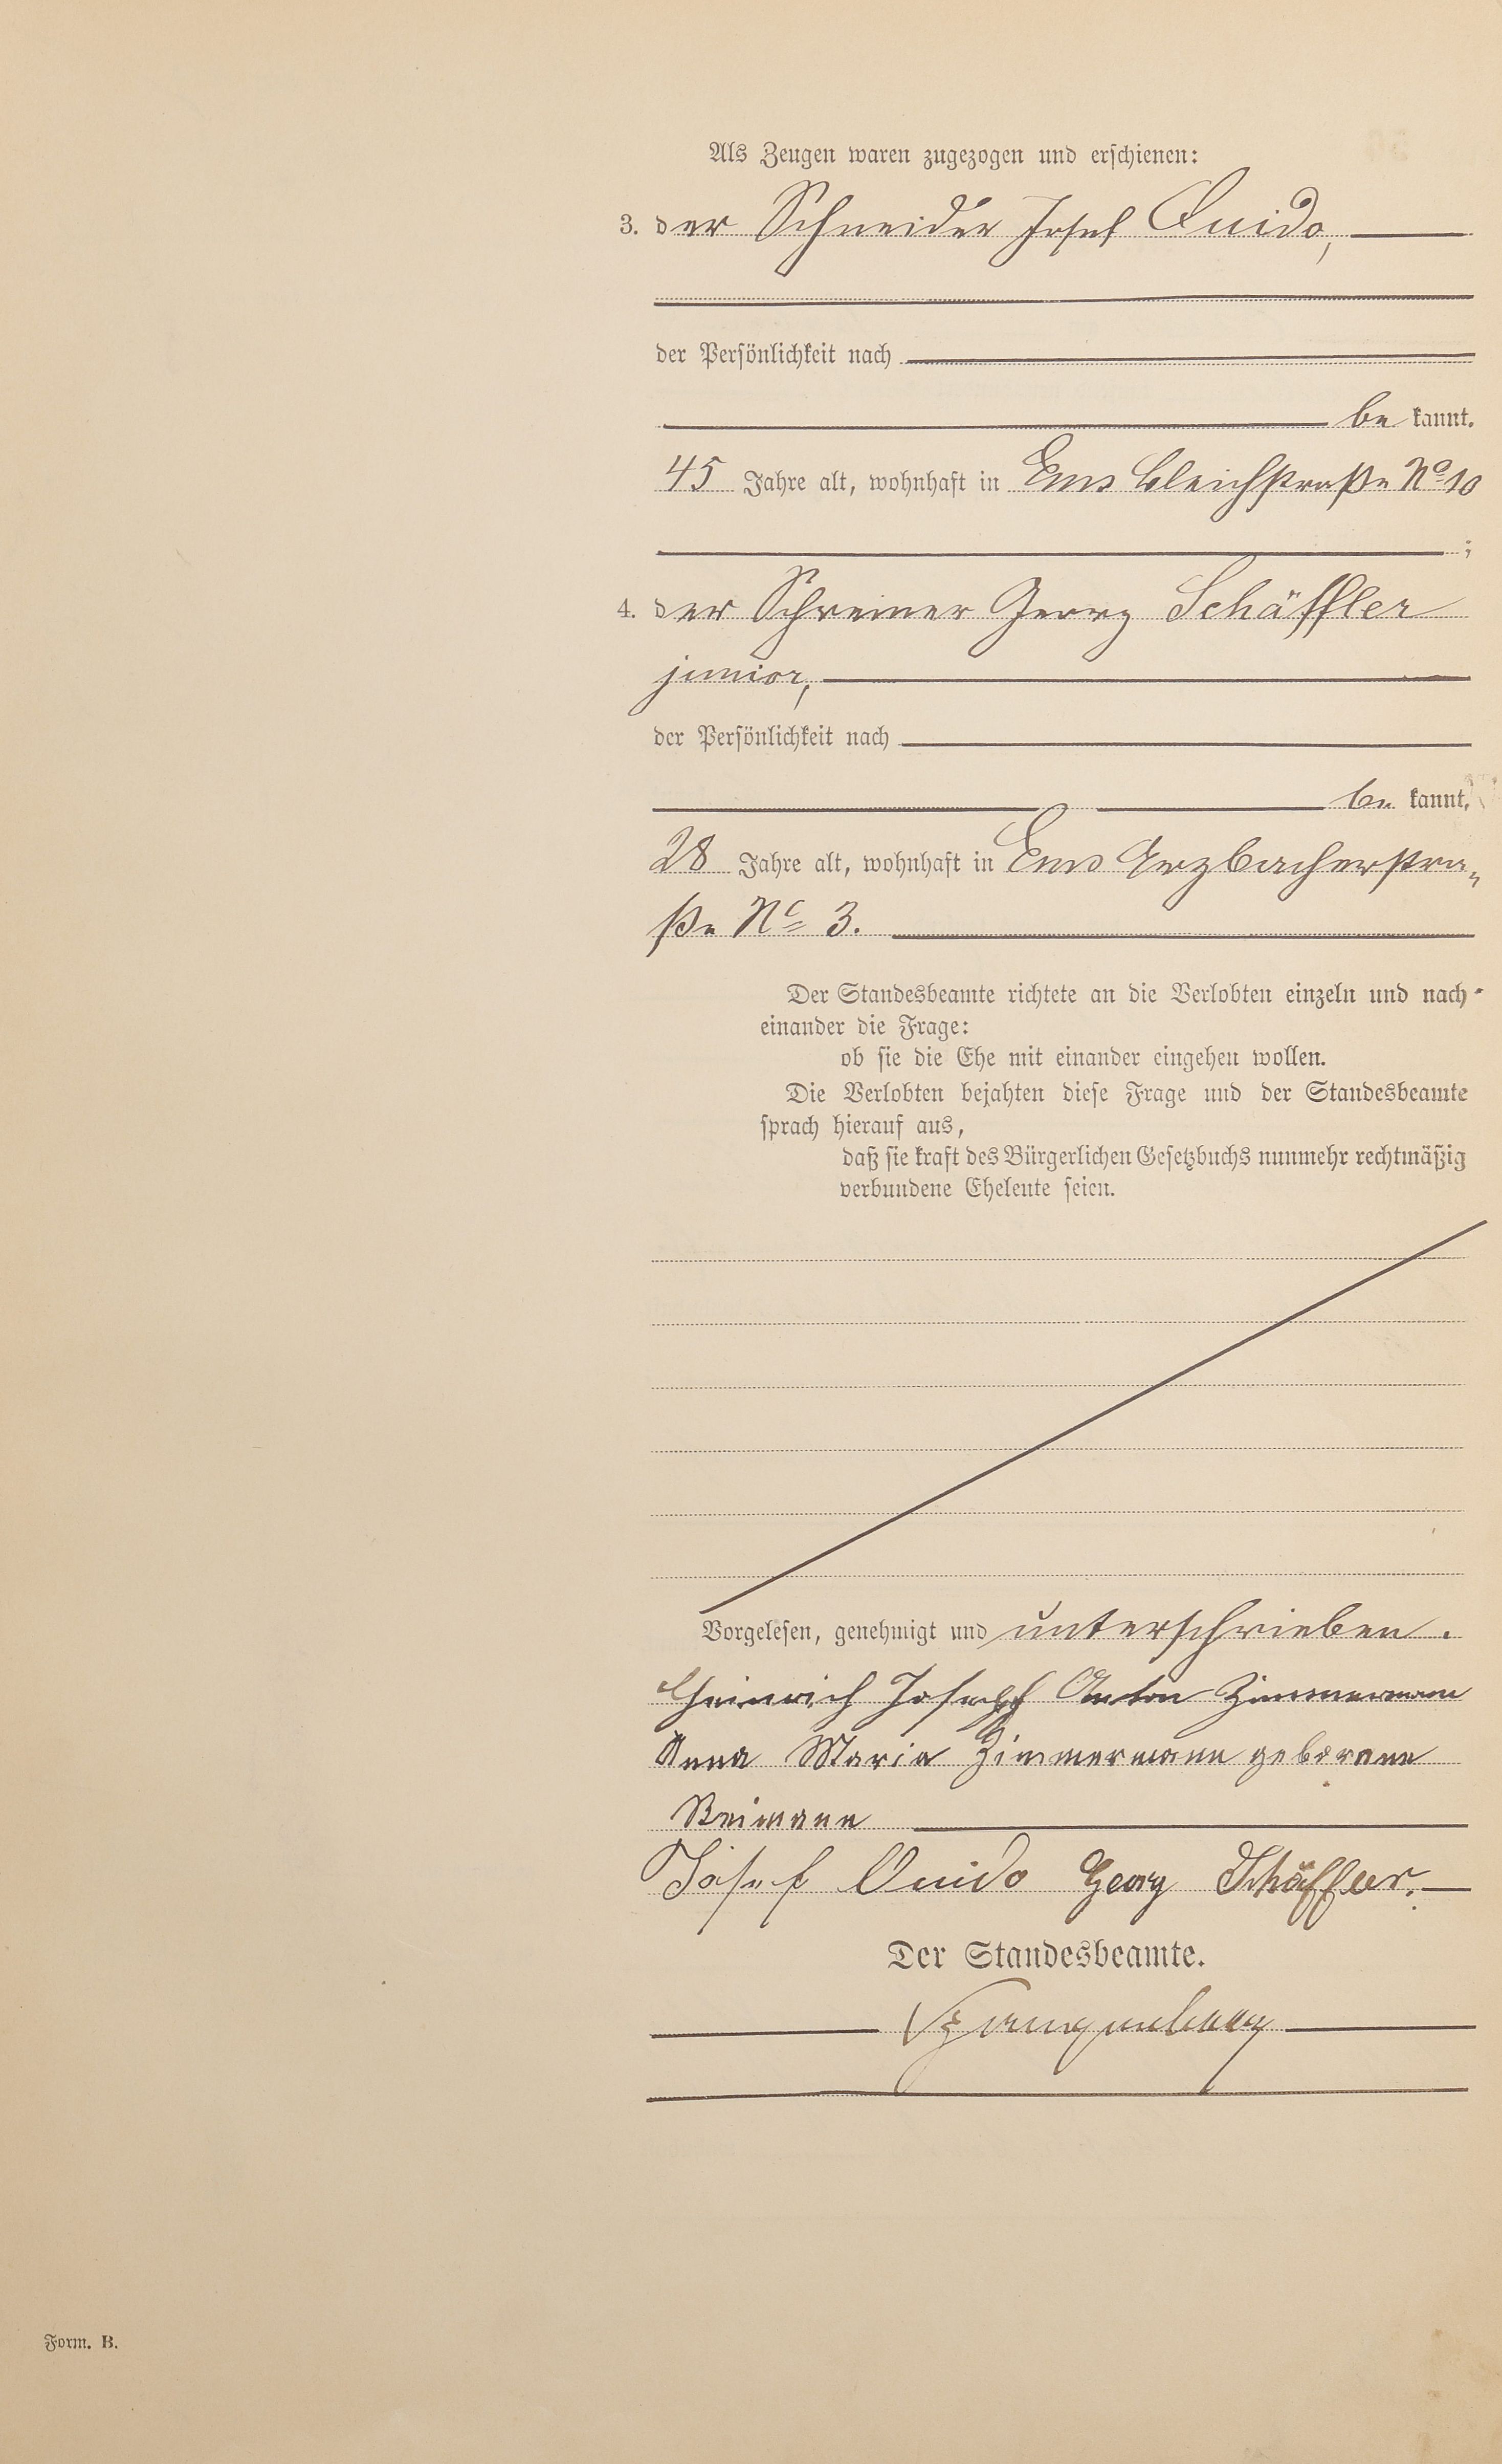 Als Zeugen waren zugezogen und erschienen:
3. der Schneider Josef Quido,
der Persönlichkeit nach
be kannt,
45 Jahre alt, wohnhaft in Ems Bleichstraße No 10
;
4. der Schreiner Georg Schäffler
junior,
der Persönlichkeit nach
be kannt,
28 Jahre alt, wohnhaft in Ems Arzbacherstra-
ße No 3.
Der Standesbeamte richtete an die Verlobten einzeln und nach-
einander die Frage:
ob sie die Ehe mit einander eingehen wollen.
Die Verlobten bejahten diese Frage und der Standesbeamte
sprach hierauf aus,
daß sie kraft des Bürgerlichen Gesetzbuchs nunmehr rechtmäßig
verbundene Eheleute seien.
Vorgelesen, genehmigt und unterschrieben.
Heinrich Joseph Anton Zimmermann
Anna Maria Zimmermann geborene
Reimann
Josef Quido Georg Schäffler.
Der Standesbeamte.
Form. B.